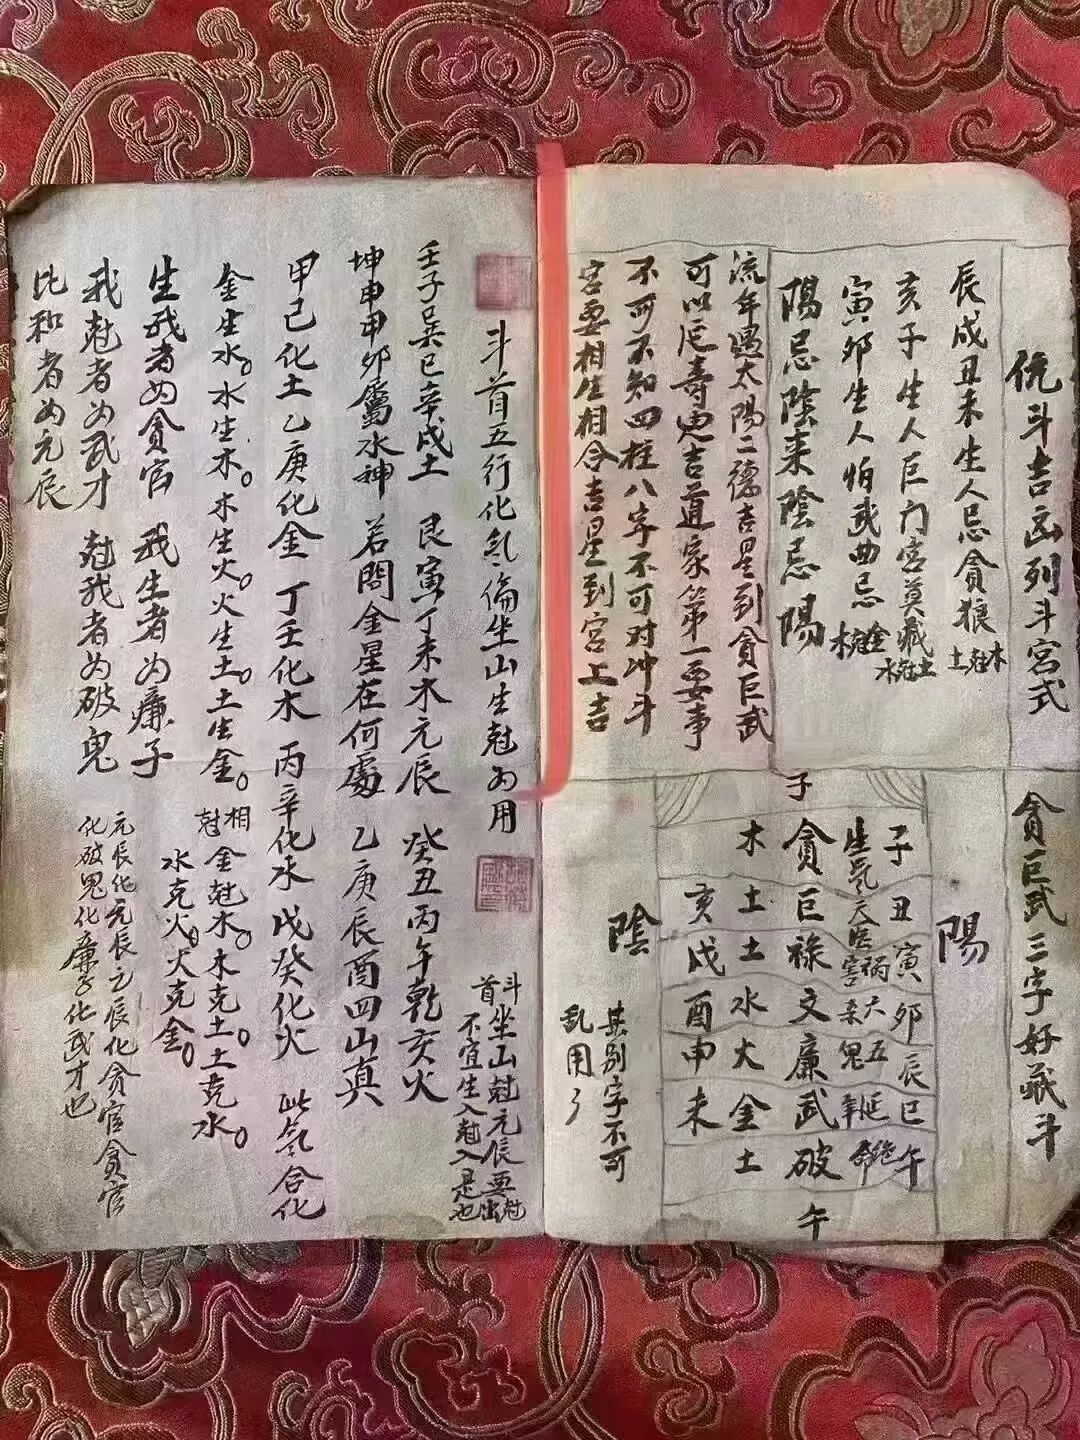 斗吉凶列斗宮式
辰戌丑未生人忌貪狼
木尅土
亥子生人巨门宮莫藏
土尅水
寅卯生人怕武曲忌
金尅木
陽忌陰来陰忌陽
流年遇太陽二德吉星到貪巨武
可以延寿更吉道家第一要事
不可不知四柱八字不可对冲斗
宮要相生相合吉星到宮上吉
貪巨武三字好藏斗
陽
子
子丑寅卯辰巳午
生氣天医祸害六杀五鬼延年绝命
貪巨祿文廉武破
木土土水火金土
亥戌酉申未
午
陰
其别字不可
乱用了
斗首五行化氣倫坐山生尅为用
壬子巽巳辛戌土 艮寅丁未木元辰 癸丑丙午乾亥火
斗首坐山尅元辰要尅出
不宜生入尅入是也
坤申甲卯屬水神 若問金星在何處 乙庚辰酉四山真
甲己化土乙庚化金 丁壬化木 丙辛化水 戊癸化火 此氣合化
金生水。水生木。木生火。火生土。土生金。
相尅 金尅木。木克土。土克水。
水克火。火克金。
生我者为貪官 我生者为廉子
我尅者为武才 尅我者为破鬼
比和者为元辰
元辰化元辰元辰化貪官貪官
化破鬼化廉子化武才也